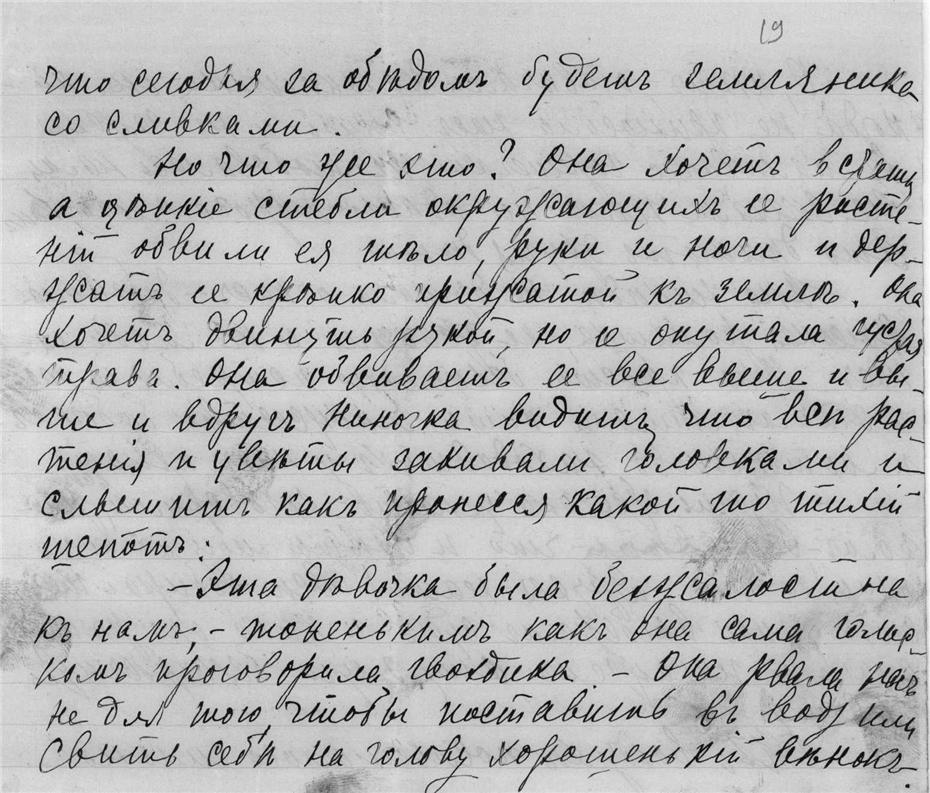 19
что сегодня за обѣдомъ будетъ земляника
со сливками.
Но что же это? Она хочетъ встать
а цѣпкіе стебли окружающихъ ее расте-
ній обвили ея тѣло, руки и ноги и дер-
жатъ ее крѣпко прижатой къ землѣ. Она
хочетъ двинуть рукой, но ее опутала густая
трава. Она обвиваетъ ее все выше и вы-
ше и вдругъ Ниночка видитъ, что всѣ рас-
тенія и цвѣты закивали головками и
слышитъ какъ пронесся какой то тихій
шепотъ:
– Эта дѣвочка была безжалостна
къ намъ, – тоненькимъ какъ она сама голос-
комъ проговорила гвоздика – Она рвала насъ
не для того, чтобы поставить въ воду или
свить себѣ на голову хорошенькій вѣнокъ.